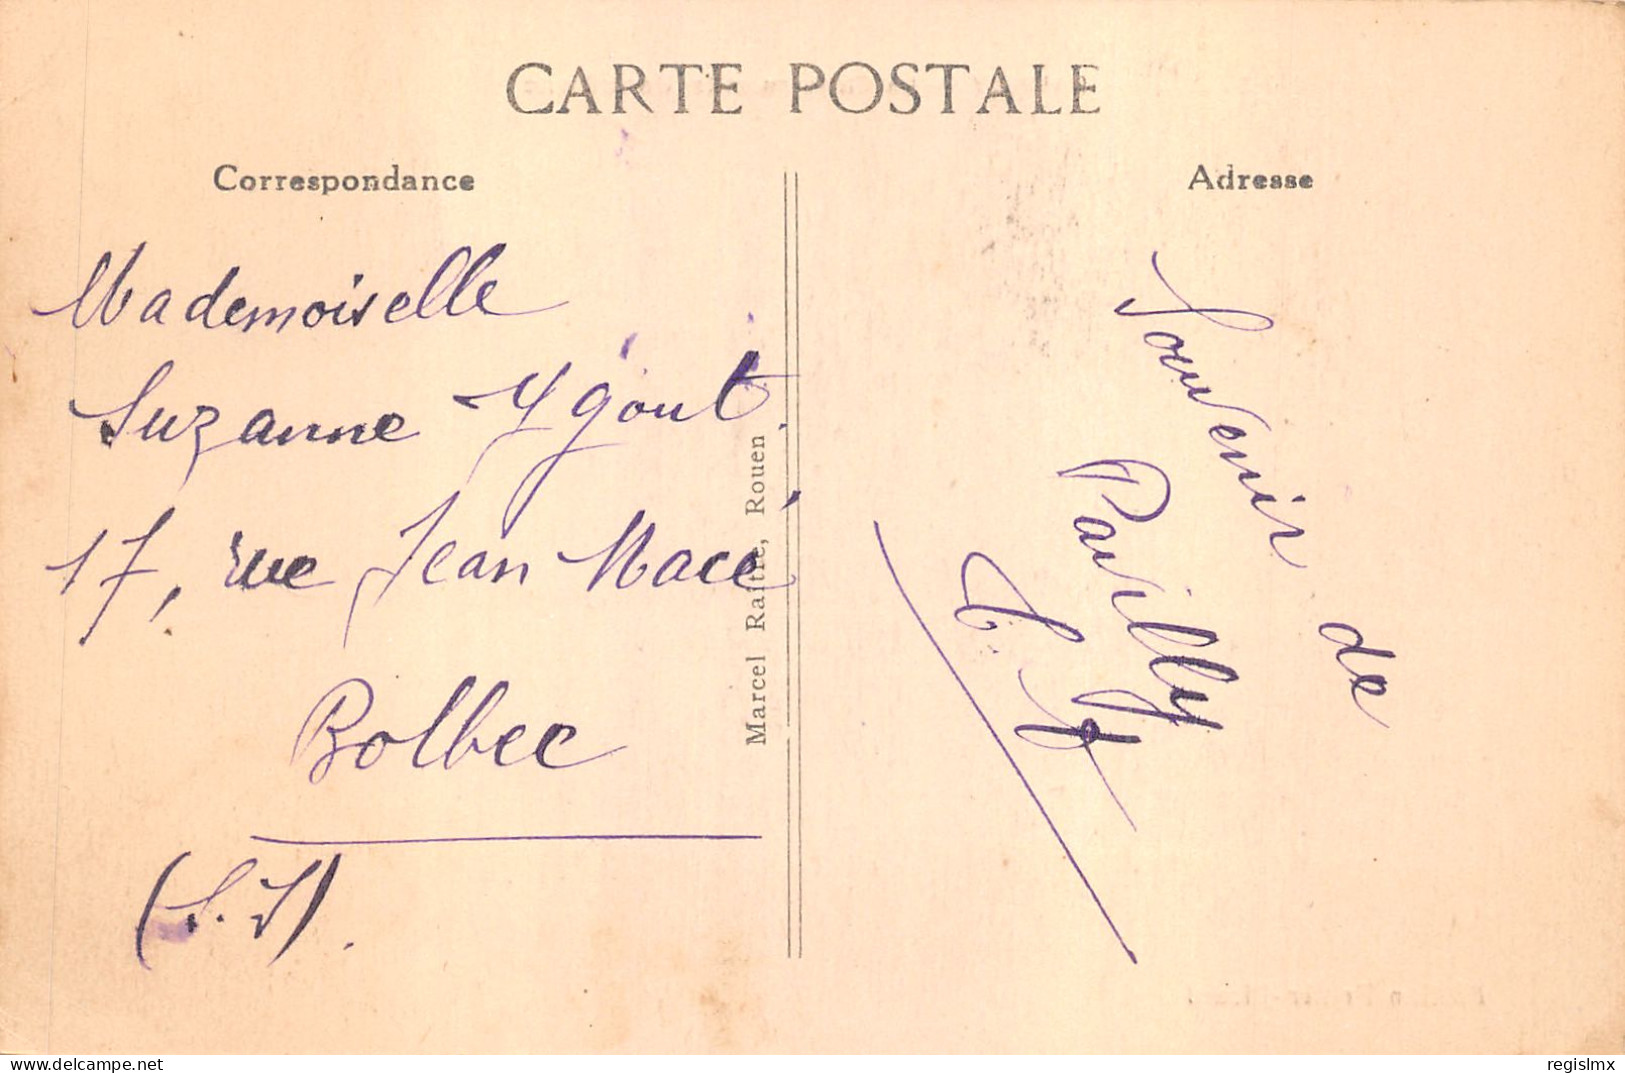 CARTE POSTALE
Correspondance
Adresse
Mademoiselle
Suzanne Ygout.
17, rue Jean Macé
Bolbec
(S.I)
Marcel Raitre, Rouen
Souvenir de
Pavilly
delcampe.net
regislmx